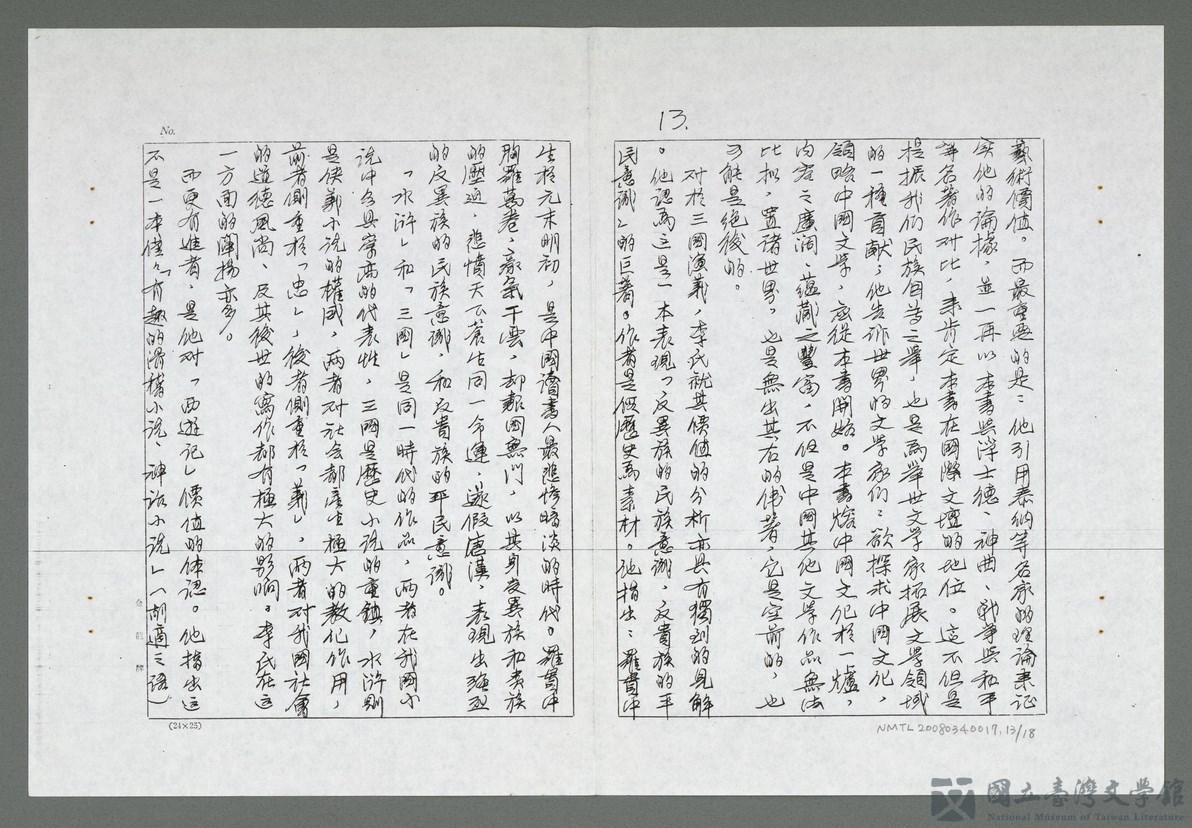 13.
藝術價值。而最重要的是：他引用泰納等名家的理論來証
实他的論據，並一再以本書與浮士德、神曲、戰爭與和平
等名著作对比，来肯定本書在國際文壇的地位。這不但是
提振我们民族自尊之舉，也是為举世文学家拓展文学領域
的一種貢献；他告訴世界的文学家们：欲探求中國文化，
領略中國文学，應從本書開始。本書熔中國文化於一爐，
内容之廣濶、蕴藏之豐富，不但是中國其他文学作品無法
比拟，置諸世界，也是無出其右的偉著，它是空前的，也
可能是絶後的。
对於三國演義，李氏就其價值的分析亦具有獨到的見解
。他認為這是一本表現「反異族的民族意識，反貴族的平
民意識」的巨著。作者是假歷史為素材。他指出：羅貫中
No.
生於元末明初，是中國讀書人最悲慘暗淡的時代。羅貫中
胸羅萬卷，豪氣干雲，却報國無门，以其身受異族和貴族
的壓迫，悲憤天下蒼生同一命運，遂假唐漢，表現出强烈
的反異族的民族意識，和反貴族的平民意識。
「水滸」和「三國」是同一時代的作品，两者在我國小
说中各具崇高的代表性，三國是歷史小说的重鎮，水滸則
是俠義小说的權威，两者对社会都産生極大的教化作用，
前者側重於「忠」，後者側重於「義」，两者对我國社會
的道德風尚、及其後世的寫作都有極大的影响。李氏在這
一方面的闡揚亦多。
而更有進者，是他对「西遊記」價值的体認。他指出這
不是一本僅々「有趣的滑稽小说、神话小说」（胡適之語）
(24×25)
NMTL20080340017,13/18
國立臺灣文學館
National Museum of Taiwan Literature